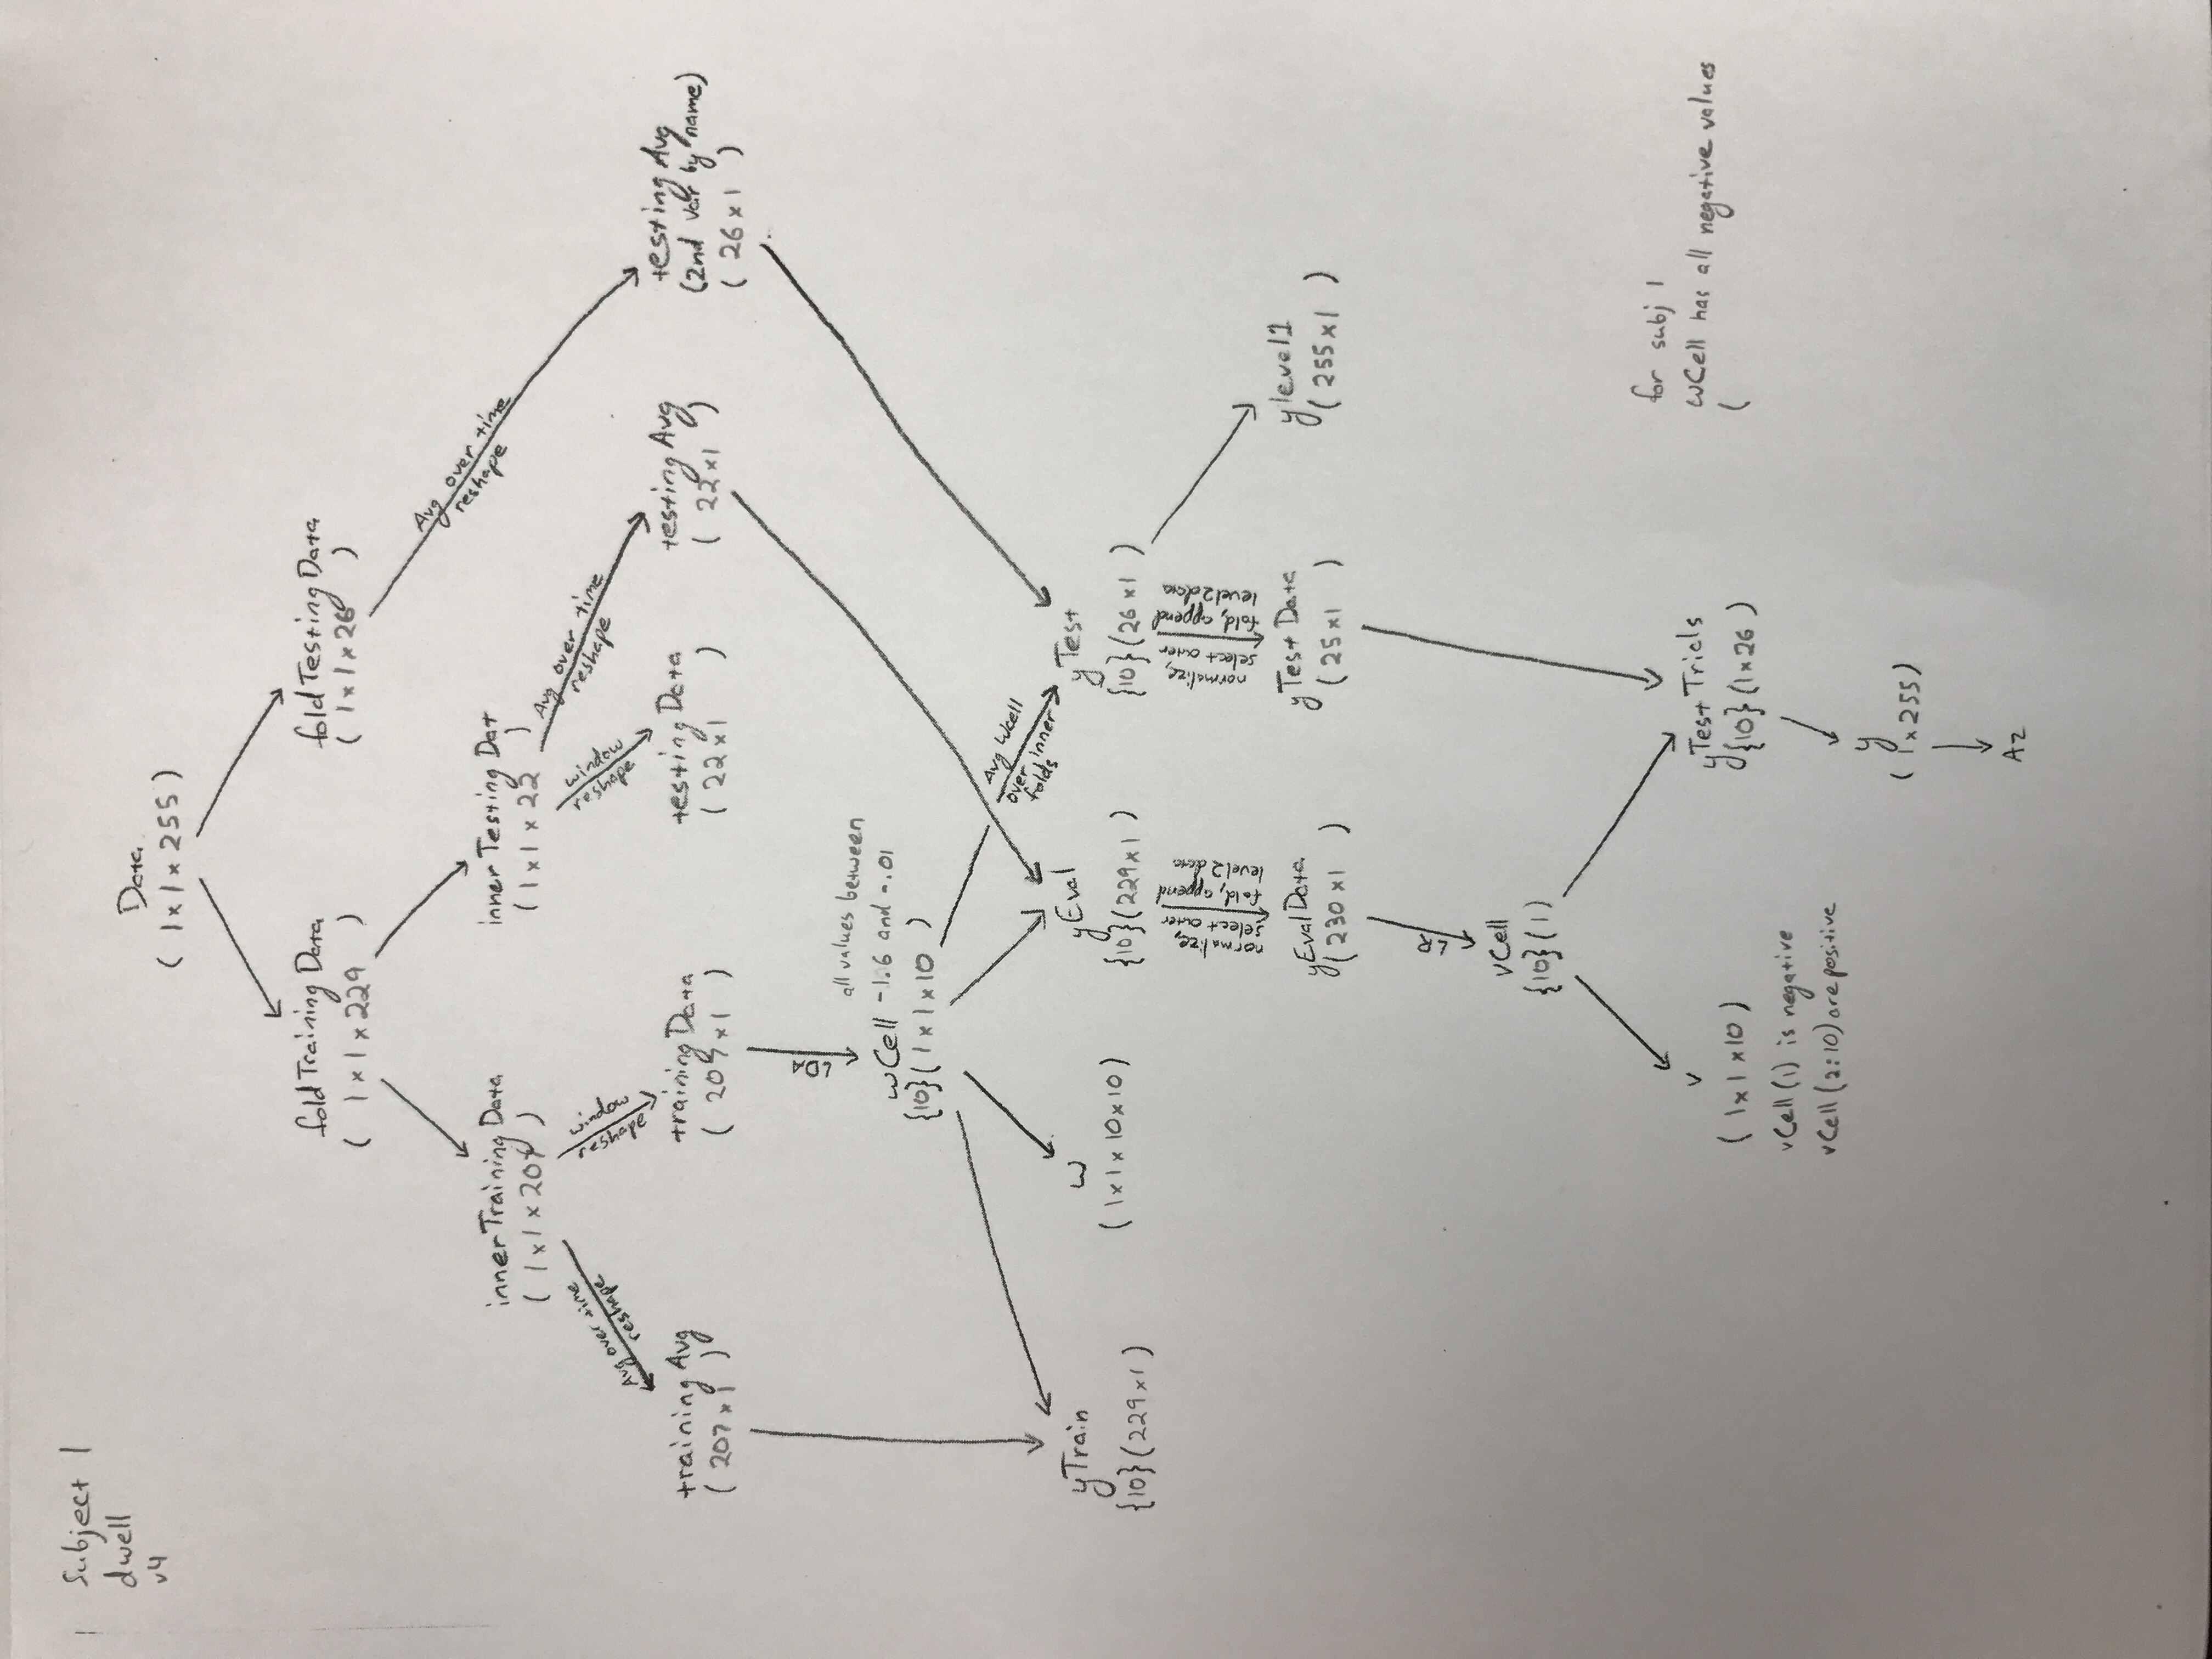 Subject 1
dwell
v4
Data
( 1x1x255 )
fold Training Data
( 1x1x229 )
fold Testing Data
( 1x1x26 )
Avg over time
reshape
inner Training Data
( 1x1x207 )
inner Testing Dat
( 1x1x22 )
Avg over time
reshape
window
reshape
window
reshape
Avg over time
reshape
training Avg
( 207x1 )
training Data
( 207x1 )
testing Data
( 22x1 )
testing Avg
( 22x1 )
testing Avg
(2nd var by name)
( 26x1 )
LDA
all values between
wCell -1.6 and -.01
{10}( 1x1x10 )
Avg Wcell
over inner
folds
yTrain
{10}(229x1)
w
(1x1x10x10)
yEval
{10}(229x1)
yTest
{10}(26x1)
normalize,
select outer
fold, append
level2data
normalize,
select outer
fold, append
level2data
yEvalData
(230x1 )
yTest Data
(25x1 )
ylevel1
(255x1 )
LR
vCell
{10}(1)
v
(1x1x10)
vCell(1) is negative
vCell(2:10) are positive
yTest Trials
{10}(1x26 )
for subj 1
wCell has all negative values
(
y
( 1x255)
Az